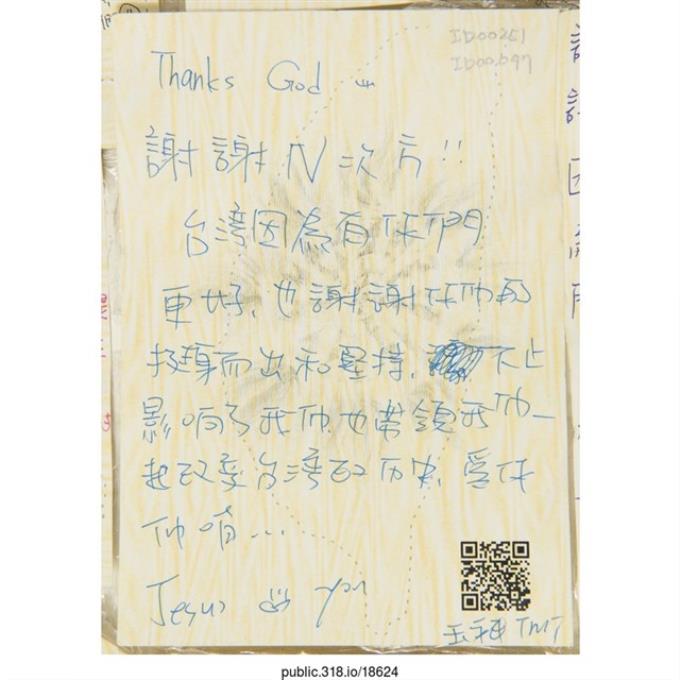 ID00251
ID00697
Thanks God
謝謝N次方!!
台灣因為有你們
更好,也謝謝你們的
挺身而出和堅持,不止
影响了我们也带領我们一
起改变台湾的历史,愛你
们唷...
Jesus you
TMT
public.318.io/18624